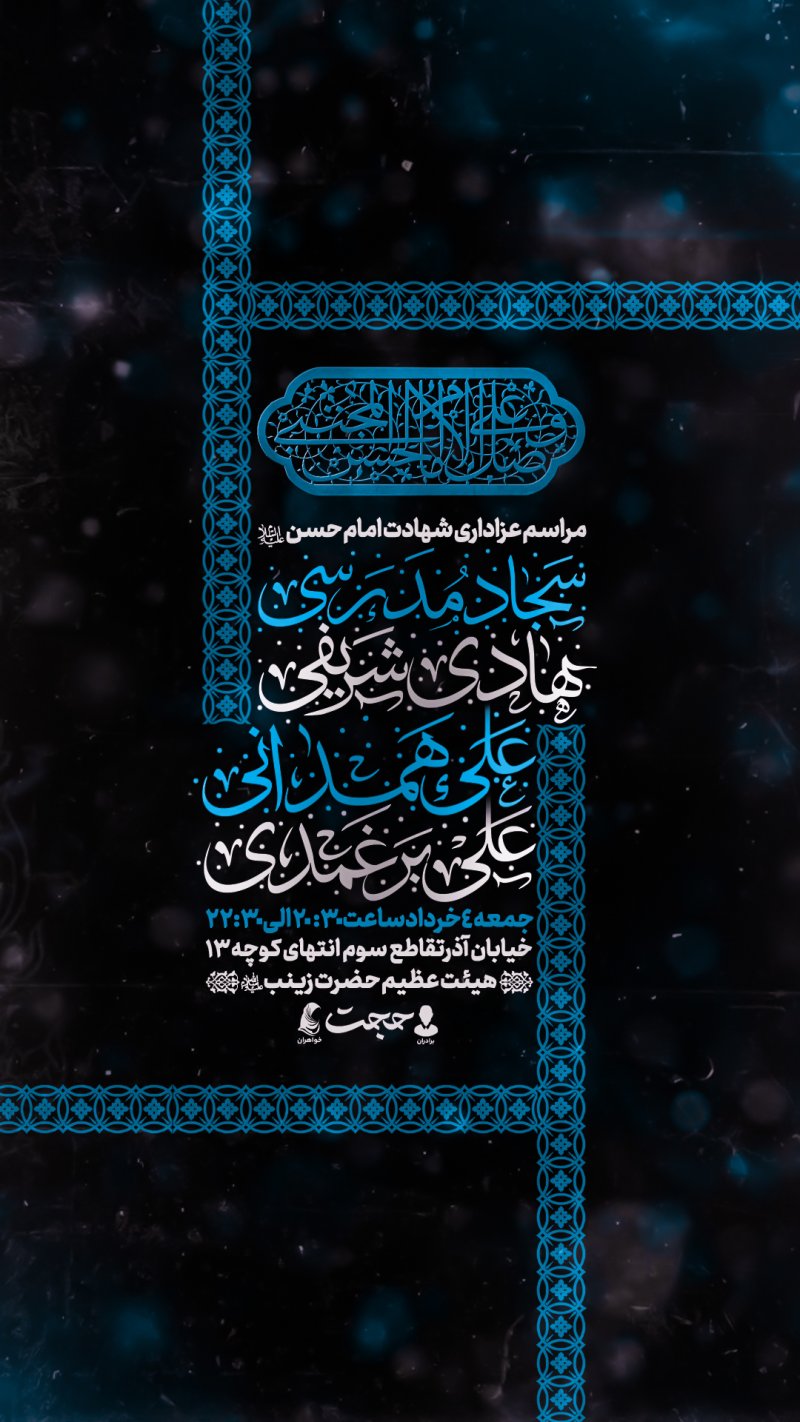 وصل علی الامام الحسن المجتبی
مراسم عزاداری شهادت امام حسن علیه السلام
سَجاد مُدَرَسی
هادی شَریفی
عَلی هَمدانی
عَلی بَرغَمَدی
جمعه ٤ خرداد ساعت ۲۰:۳۰ الی ۲۲:۳۰
خیابان آذر تقاطع سوم انتهای کوچه ۱۳
هیئت عظیم حضرت زینب
حجت
برادران
خواهران